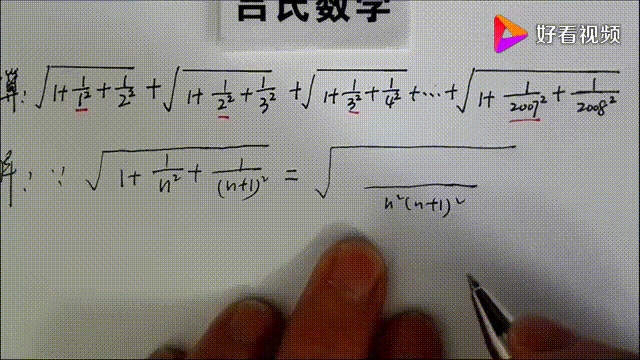 吕氏数学
好看视频
算: √(1+1/1²+1/2²) + √(1+1/2²+1/3²) + √(1+1/3²+1/4²) + ⋯ + √(1+1/2007²+1/2008²)
∵ √(1+1/n²+1/(n+1)²) = √( /n²(n+1)²)